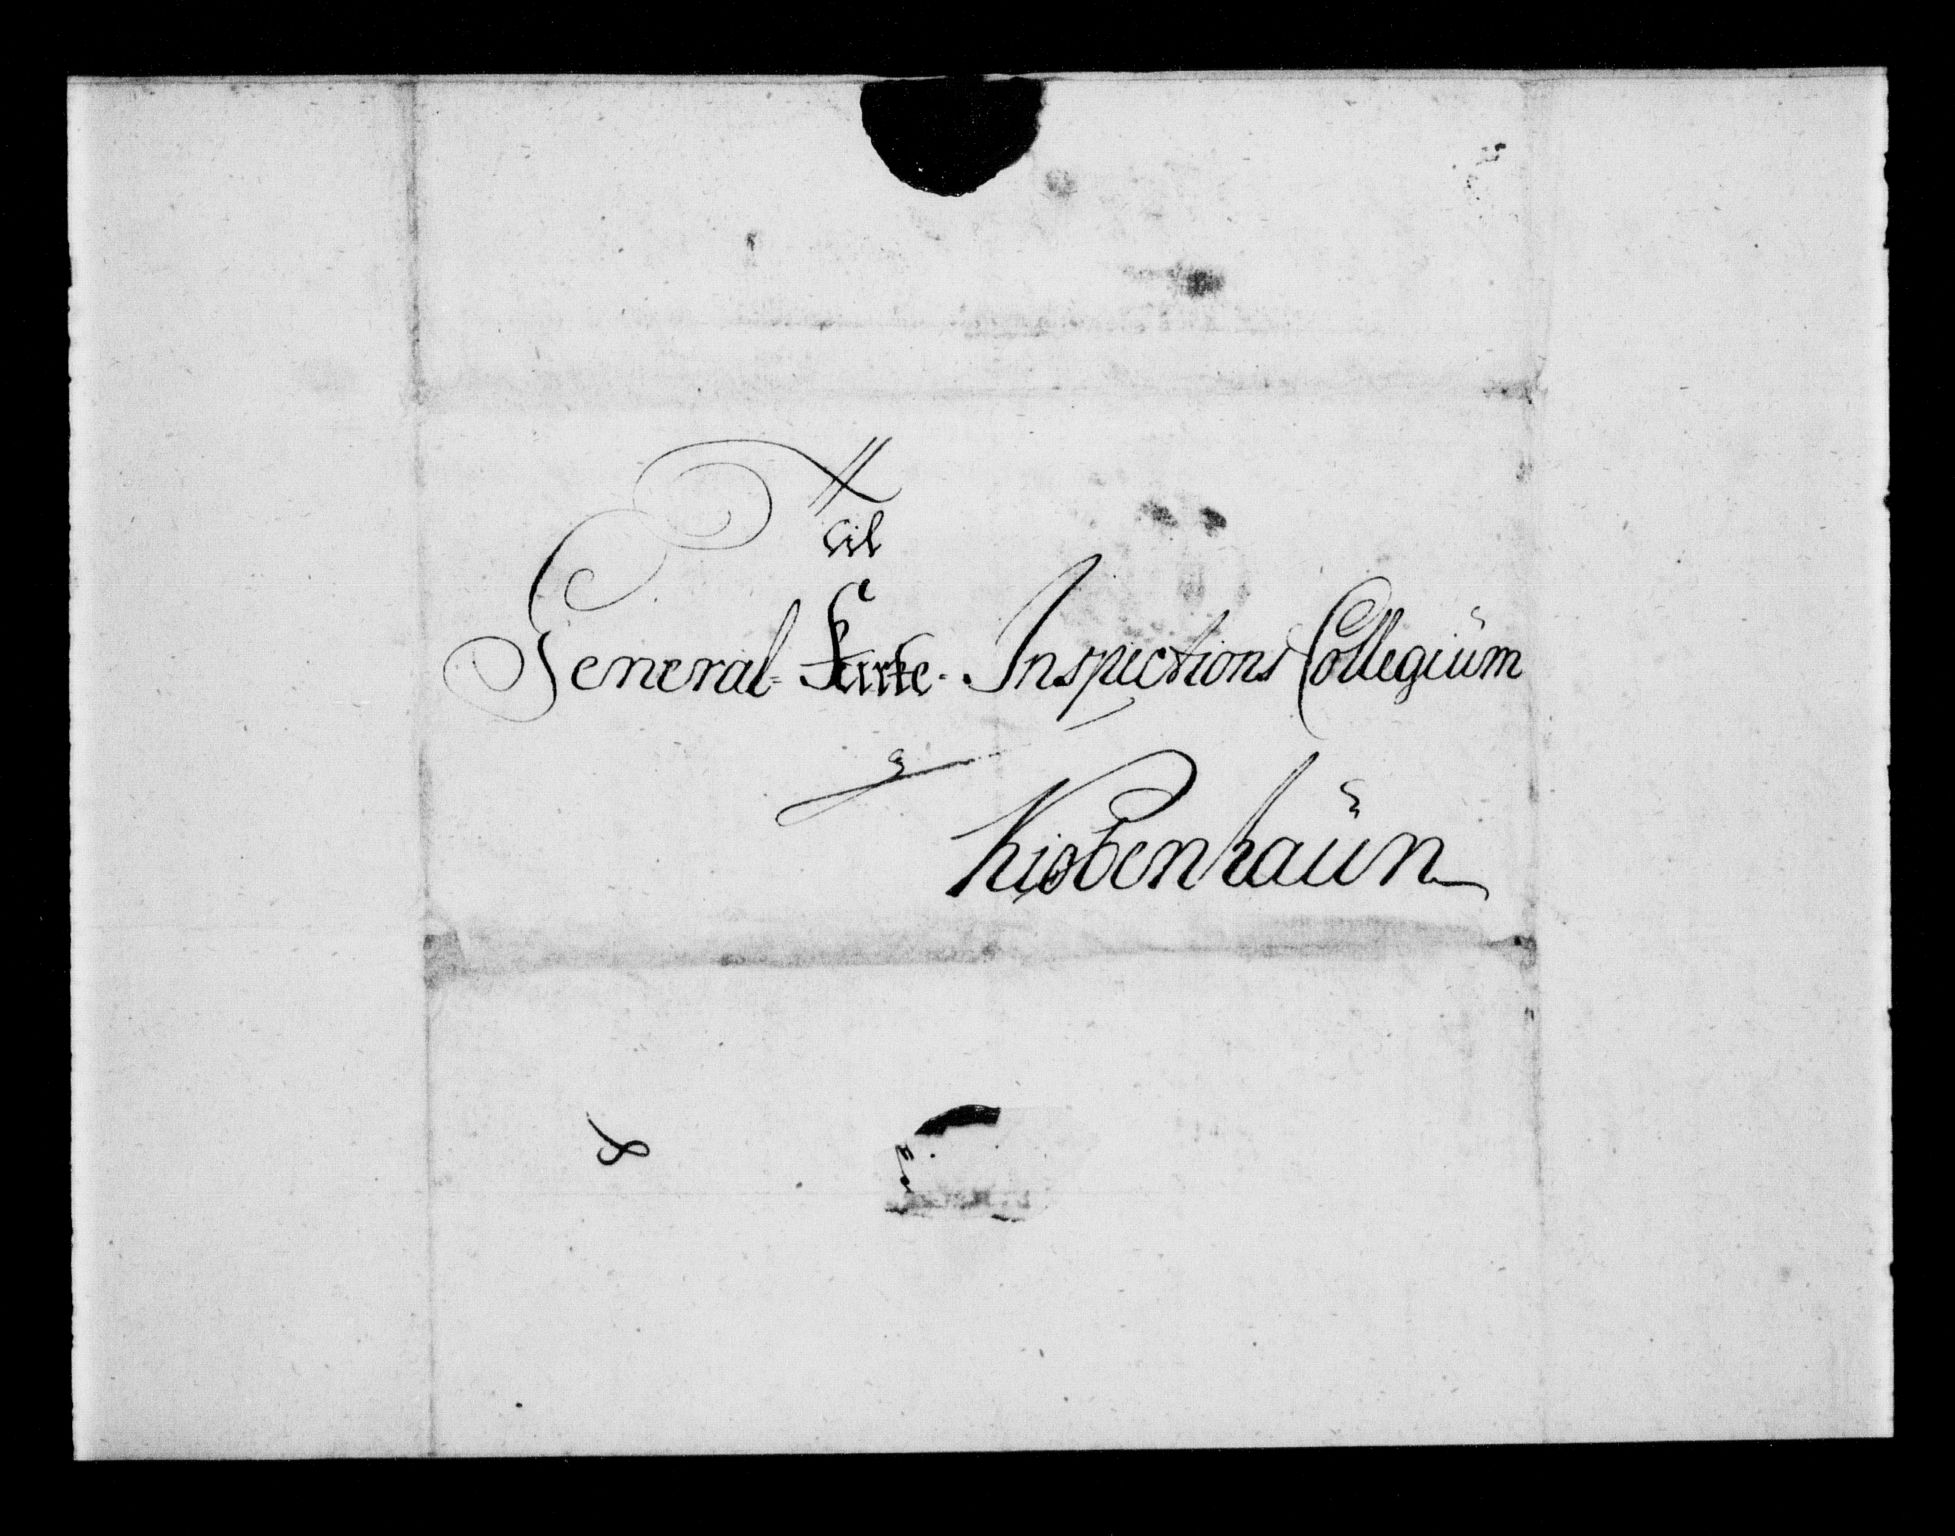 til
General- Kirke- Inspections Collegium
a
Kiøbenhaun